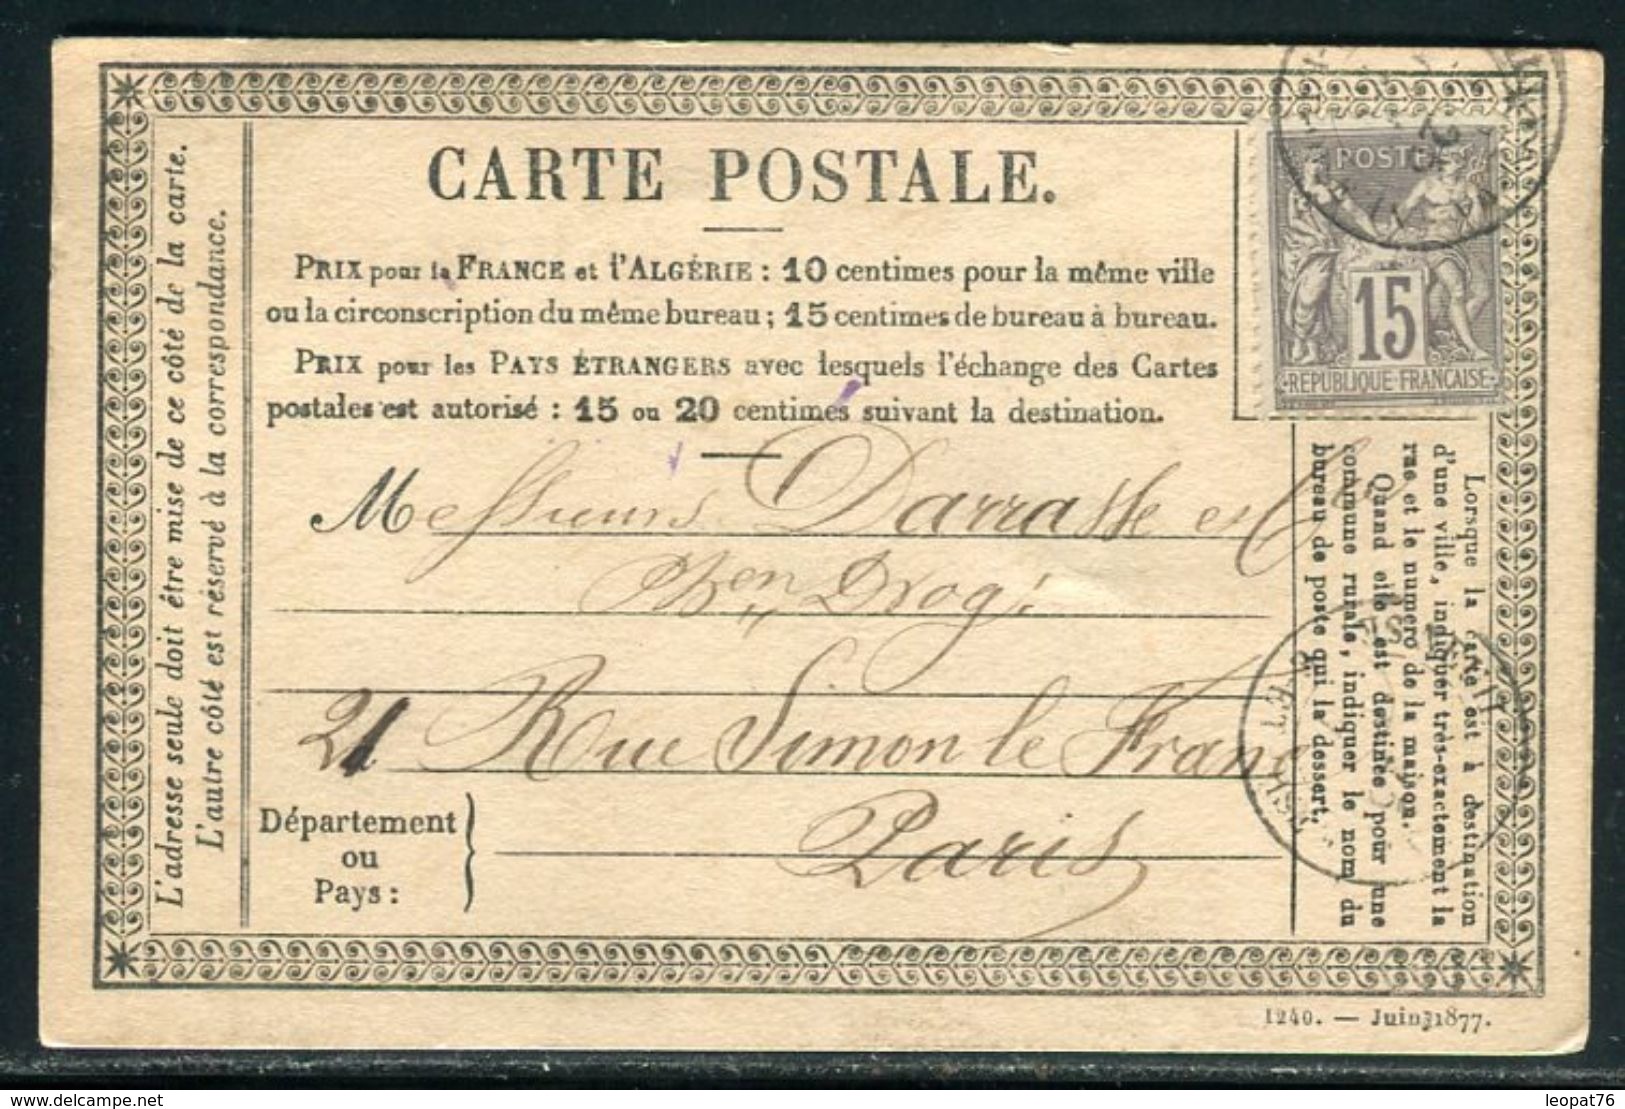 CARTE POSTALE.
PRIX pour la FRANCE et l'ALGÉRIE : 10 centimes pour la même ville
ou la circonscription du même bureau ; 15 centimes de bureau à bureau.
PRIX pour les PAYS ÉTRANGERS avec lesquels l'échange des Cartes
postales est autorisé : 15 ou 20 centimes suivant la destination.
POSTES
15
RÉPUBLIQUE FRANÇAISE
Messieurs Darrasse et
en Drog
21 Rue Simon le Franc
Paris
Département
ou
Pays :
L'adresse seule doit être mise de ce côté de la carte.
L'autre côté est réservé à la correspondance.
Lorsque la carte est à destination
d'une ville, indiquer très-exactement la
rue et le numéro de la maison.
Quand elle est destinée pour une
commune rurale, indiquer le nom du
bureau de poste qui la dessert.
1240. — Juin 1877.
delcampe.net
leopat76